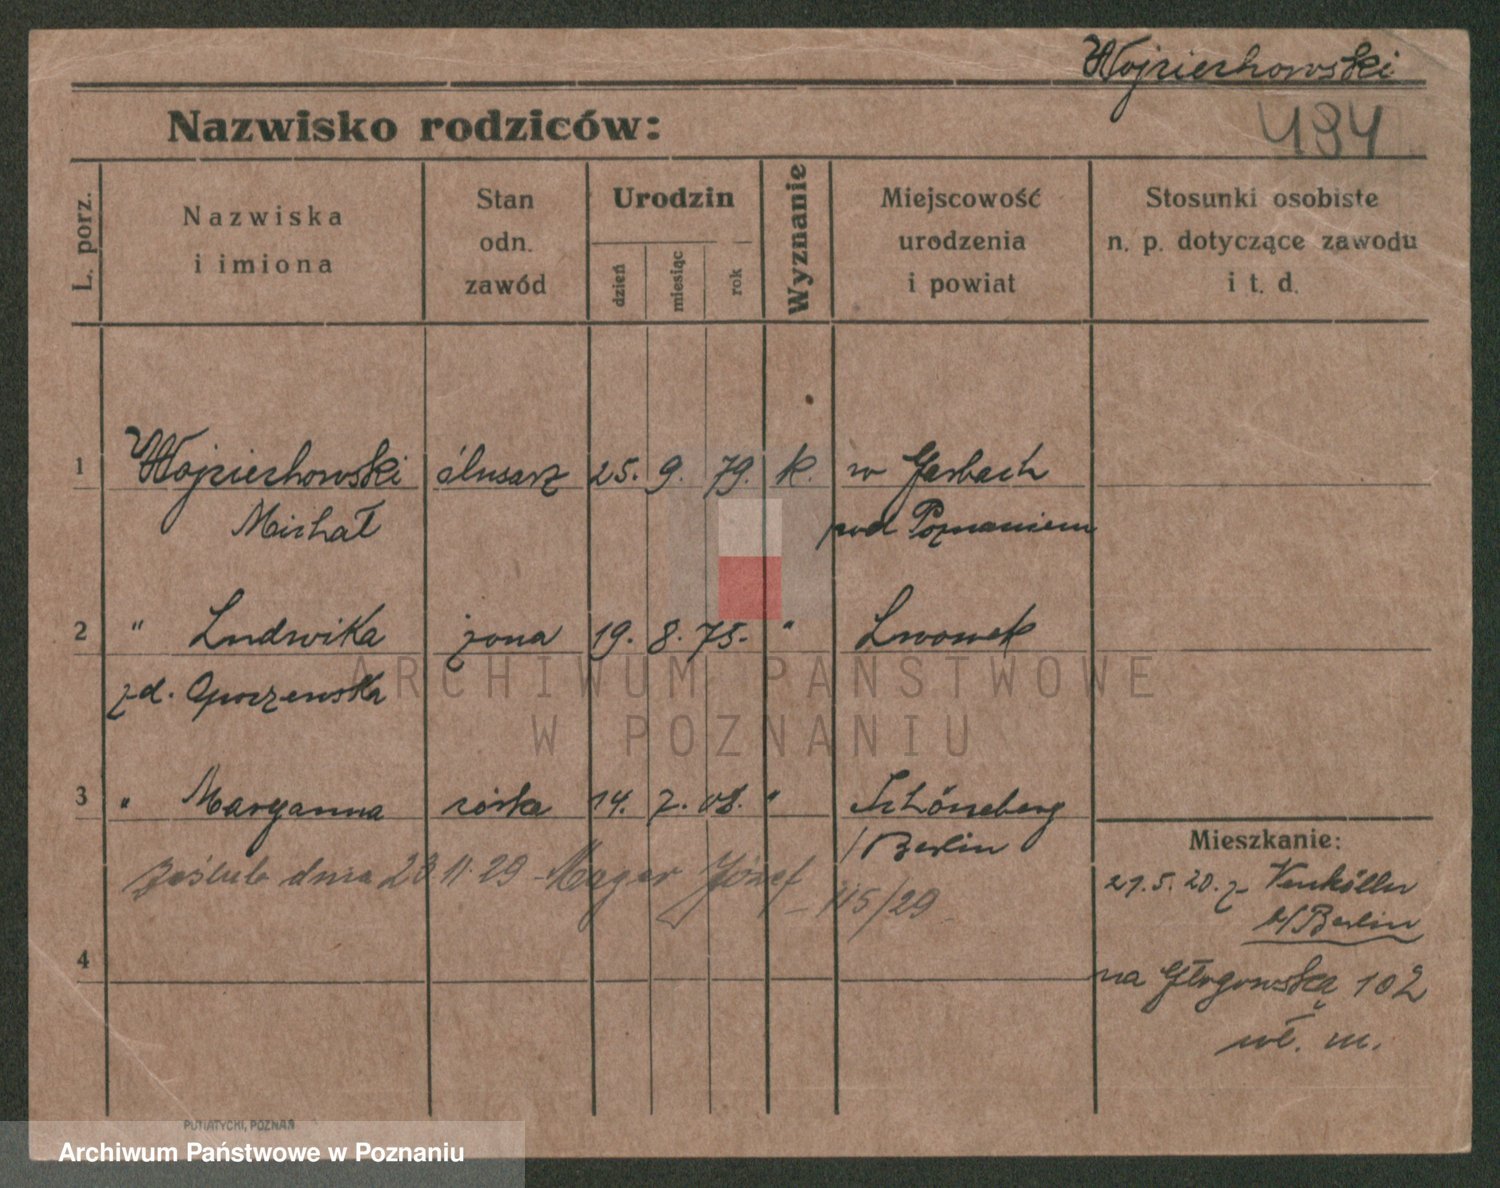 Wojciechowski
494
Nazwisko rodziców:
L. porz.
Nazwiska
i imiona
Stan
odn.
zawód
Urodzin
dzień
miesiąc
rok
Wyznanie
Miejscowość
urodzenia
i powiat
Stosunki osobiste
n. p. dotyczące zawodu
i t. d.
1 Wojciechowski ślusarz 25. 9. 79. k. w Garbach
Michał pod Poznaniem
2 " Ludwika żona 19. 8. 75. " Lwowek
zd. Opoczewska
3 " Maryanna córka 14. 7. 08. " Schöneberg
/Berlin
Zaślub dnia 23 11 29 Mager Józef - 115/29 -
4
Mieszkanie:
27. 5. 20. z
b/Berlin
na Głogowską 102
wł. m.
PUTIATYCKI, POZNAŃ
ARCHIWUM PAŃSTWOWE
W POZNANIU
Archiwum Państwowe w Poznaniu